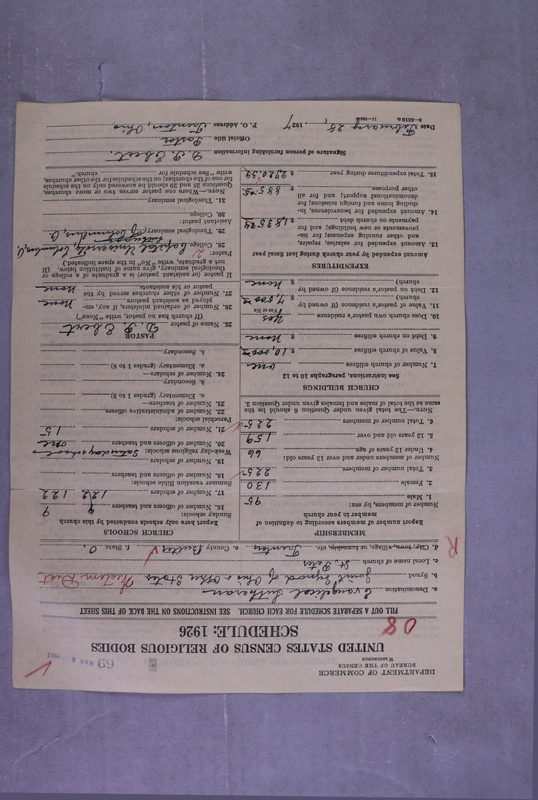 DEPARTMENT OF COMMERCE
BUREAU OF THE CENSUS
WASHINGTON
69
UNITED STATES CENSUS OF RELIGIOUS BODIES
SCHEDULE: 1926
08
FILL OUT A SEPARATE SCHEDULE FOR EACH CHURCH. SEE INSTRUCTIONS ON THE BACK OF THIS SHEET
a. Denomination Evangelical Lutheran
b. Synod Joint Synod of Ohio & Other States Western Dist
c. Local name of church St. Peter
d. City, town, village, or township, etc. Trenton e. County Butler f. State O.
R
MEMBERSHIP
Report number of members according to definition of
member in your church
Number of members, by sex:
1. Male 95
2. Female 130
3. Total number of members 225
Number of members under and over 13 years old:
4. Under 13 years of age 66
5. 13 years old and over 159
6. Total number of members 225
NOTE.—The total given under Question 6 should be the
same as the total of males and females given under Question 3.
CHURCH BUILDINGS
See instructions, paragraphs 10 to 12
7. Number of church edifices one
8. Value of church edifices $ 10,000
9. Debt on church edifices $ none
10. Does your church own a pastor's residence Yes
11. Value of pastor's residence (If owned by
church) $ 4,000
12. Debt on pastor's residence (If owned by
church) $ none
EXPENDITURES
Amount expended by your church during last fiscal year
13. Amount expended for salaries, repairs,
and other running expenses; for im-
provements or new buildings; and for
payments on church debt
14. Amount expended for benevolences, in-
cluding home and foreign missions; for
denominational support; and for all
other purposes
15. Total expenditures during year
CHURCH SCHOOLS
Report here only schools conducted by this church
Sunday schools:
16. Number of officers and teachers 9 9
17. Number of scholars 122 122
Summer vacation Bible schools:
18. Number of officers and teachers
19. Number of scholars
Week-day religious schools: Saturday school
20. Number of officers and teachers one
21. Number of scholars 15
Parochial schools:
22. Number of administrative officers
23. Number of teachers—
a. Elementary (grades 1 to 8)
b. Secondary
24. Number of scholars—
a. Elementary (grades 1 to 8)
b. Secondary
PASTOR
25. Name of pastor D. P. Ebert
(If church has no pastor, write "None")
26. Number of ordained ministers, if any, em-
ployed as assistant pastors none
27. Number of other churches served by the
pastor or his assistants none
If pastor or assistant is a graduate of a college or
theological seminary, give name of institution below. (If
not a graduate, write "No" in the space indicated.)
Pastor:
28. College Capital University Columbus, O.
29. Theological seminary
Assistant pastor:
30. College
31. Theological seminary
NOTE.—Where one pastor serves two or more churches,
Questions 28 and 29 should be answered only on the schedule
for one of the churches; on the schedules for the other churches,
write "See schedule for church."
Signature of person furnishing information D. P. Ebert
Official title Pastor
Date February 25, 1927 P. O. Address Trenton, Ohio